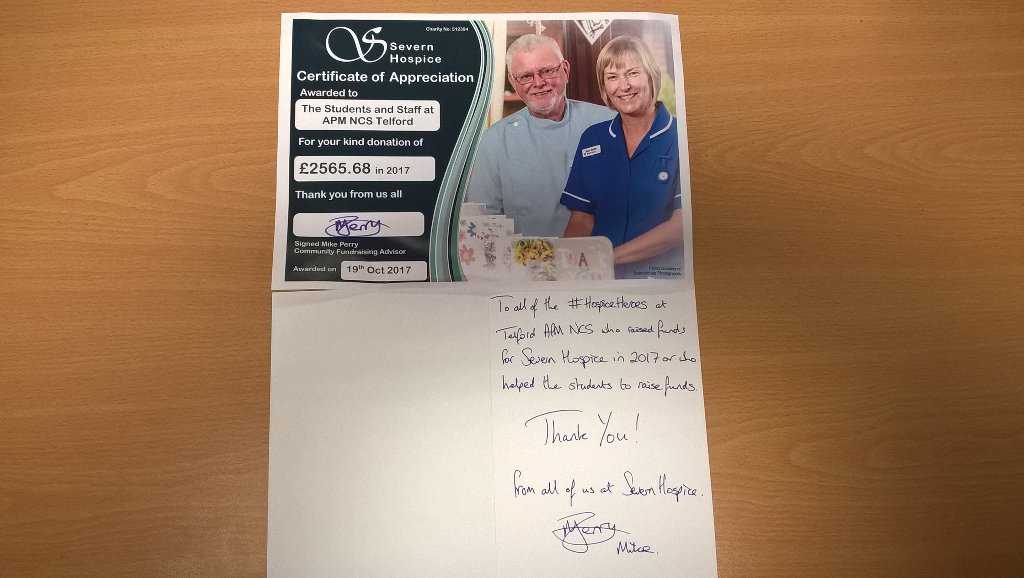 Charity No: 512394
Severn
Hospice
Certificate of Appreciation
Awarded to
The Students and Staff at
APM NCS Telford
For your kind donation of
£2565.68 in 2017
Thank you from us all
Signed Mike Perry
Community Fundraising Advisor
Awarded on 19th Oct 2017
Photo courtesy of
To all of the #HospiceHeroes at
Telford APM NCS who raised funds
for Severn Hospice in 2017 or who
helped the students to raise funds.
Thank You!
from all of us at Severn Hospice.
MPerry
Mike.